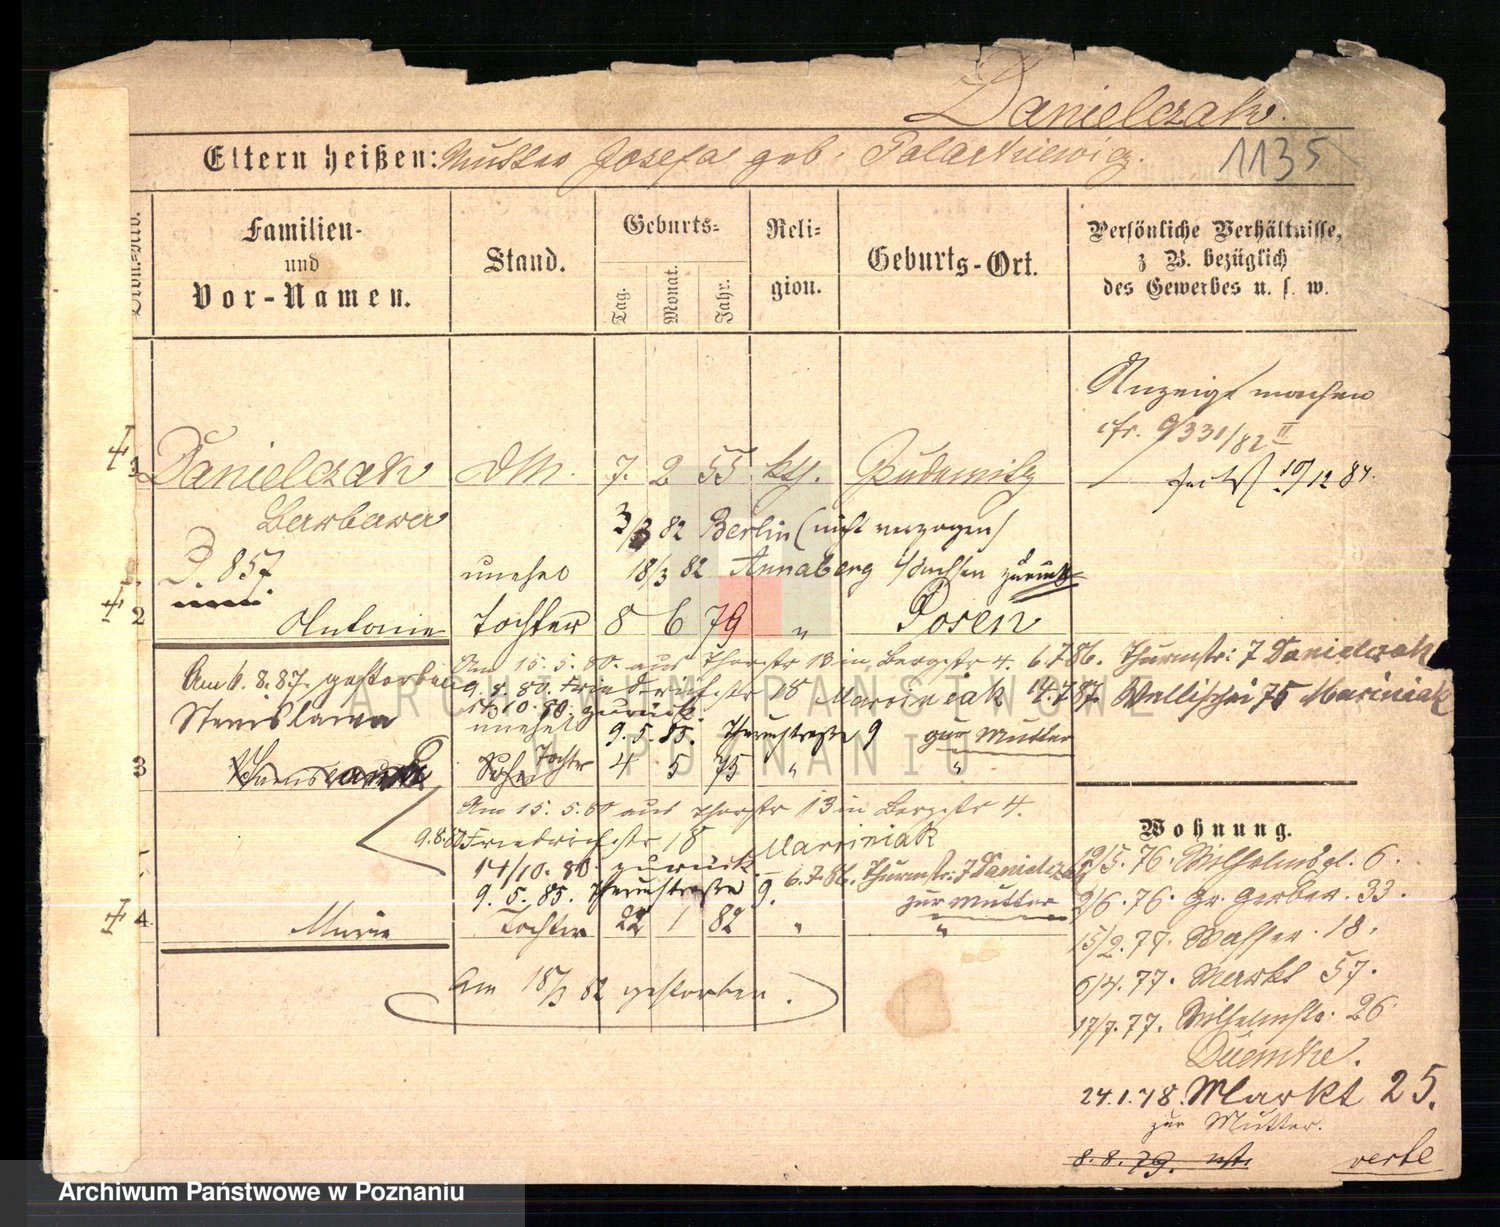 Danielczak.
Eltern heißen: Mutter Josefa geb. Palaskiewicz. 1135
Familien- und Vor-Namen.
Stand.
Geburts-
Tag. Monat. Jahr.
Reli-gion.
Geburts-Ort.
Persönliche Verhältnisse,
z B. bezüglich
des Gewerbes u. s. w.
Anzeige machen
cfr. 9331/82 II
10/12 84.
1 Danielczak DM. 7. 2 55 kth. Pudewitz
Barbara
3/3 82 Berlin (nicht verzogen)
D. 857
unehel 18/3 82 Annaberg Sachsen zurück
2 Antonie Tochter 8 6 79 " Posen
Am 15. 5. 80. aus Thorstr 13 in Bergstr 4. 6.7.86. Thurmstr: 7 Danielczak
Am 6. 8. 87. gestorben
9. 8. 80. Friedrichstr 18 Marciniak 14.7.87. Wallischei 75 Marciniak
14/10. 80. zurück.
Stanislawa unehel 9. 5. 85. Thurmstraße 9 zur Mutter
3 Sohn Tochter 4 5 75 " "
Am 15. 5. 80 aus Thorstr 13 in Bergstr 4.
9.8.80 Friedrichstr 18 Marciniak
14/10. 80. zurück.
6.7.86. Thurmstr: 7 Danielczak
9. 5. 85. Thurmstraße 9. zur Mutter
4. Marie Tochter 22 1 82 " "
Am 18/3 82 gestorben.
Wohnung.
12/5. 76. Wilhelmspl. 6.
2/6. 76. Gr. Gerber. 33.
15/2. 77. Wasser. 18.
6/4. 77. Markt 57.
17/7. 77. Wilhelmstr. 26
24.1.78. Markt 25.
zur Mutter.
8. 8. 79.
ARCHIWUM PAŃSTWOWE
W POZNANIU
Archiwum Państwowe w Poznaniu